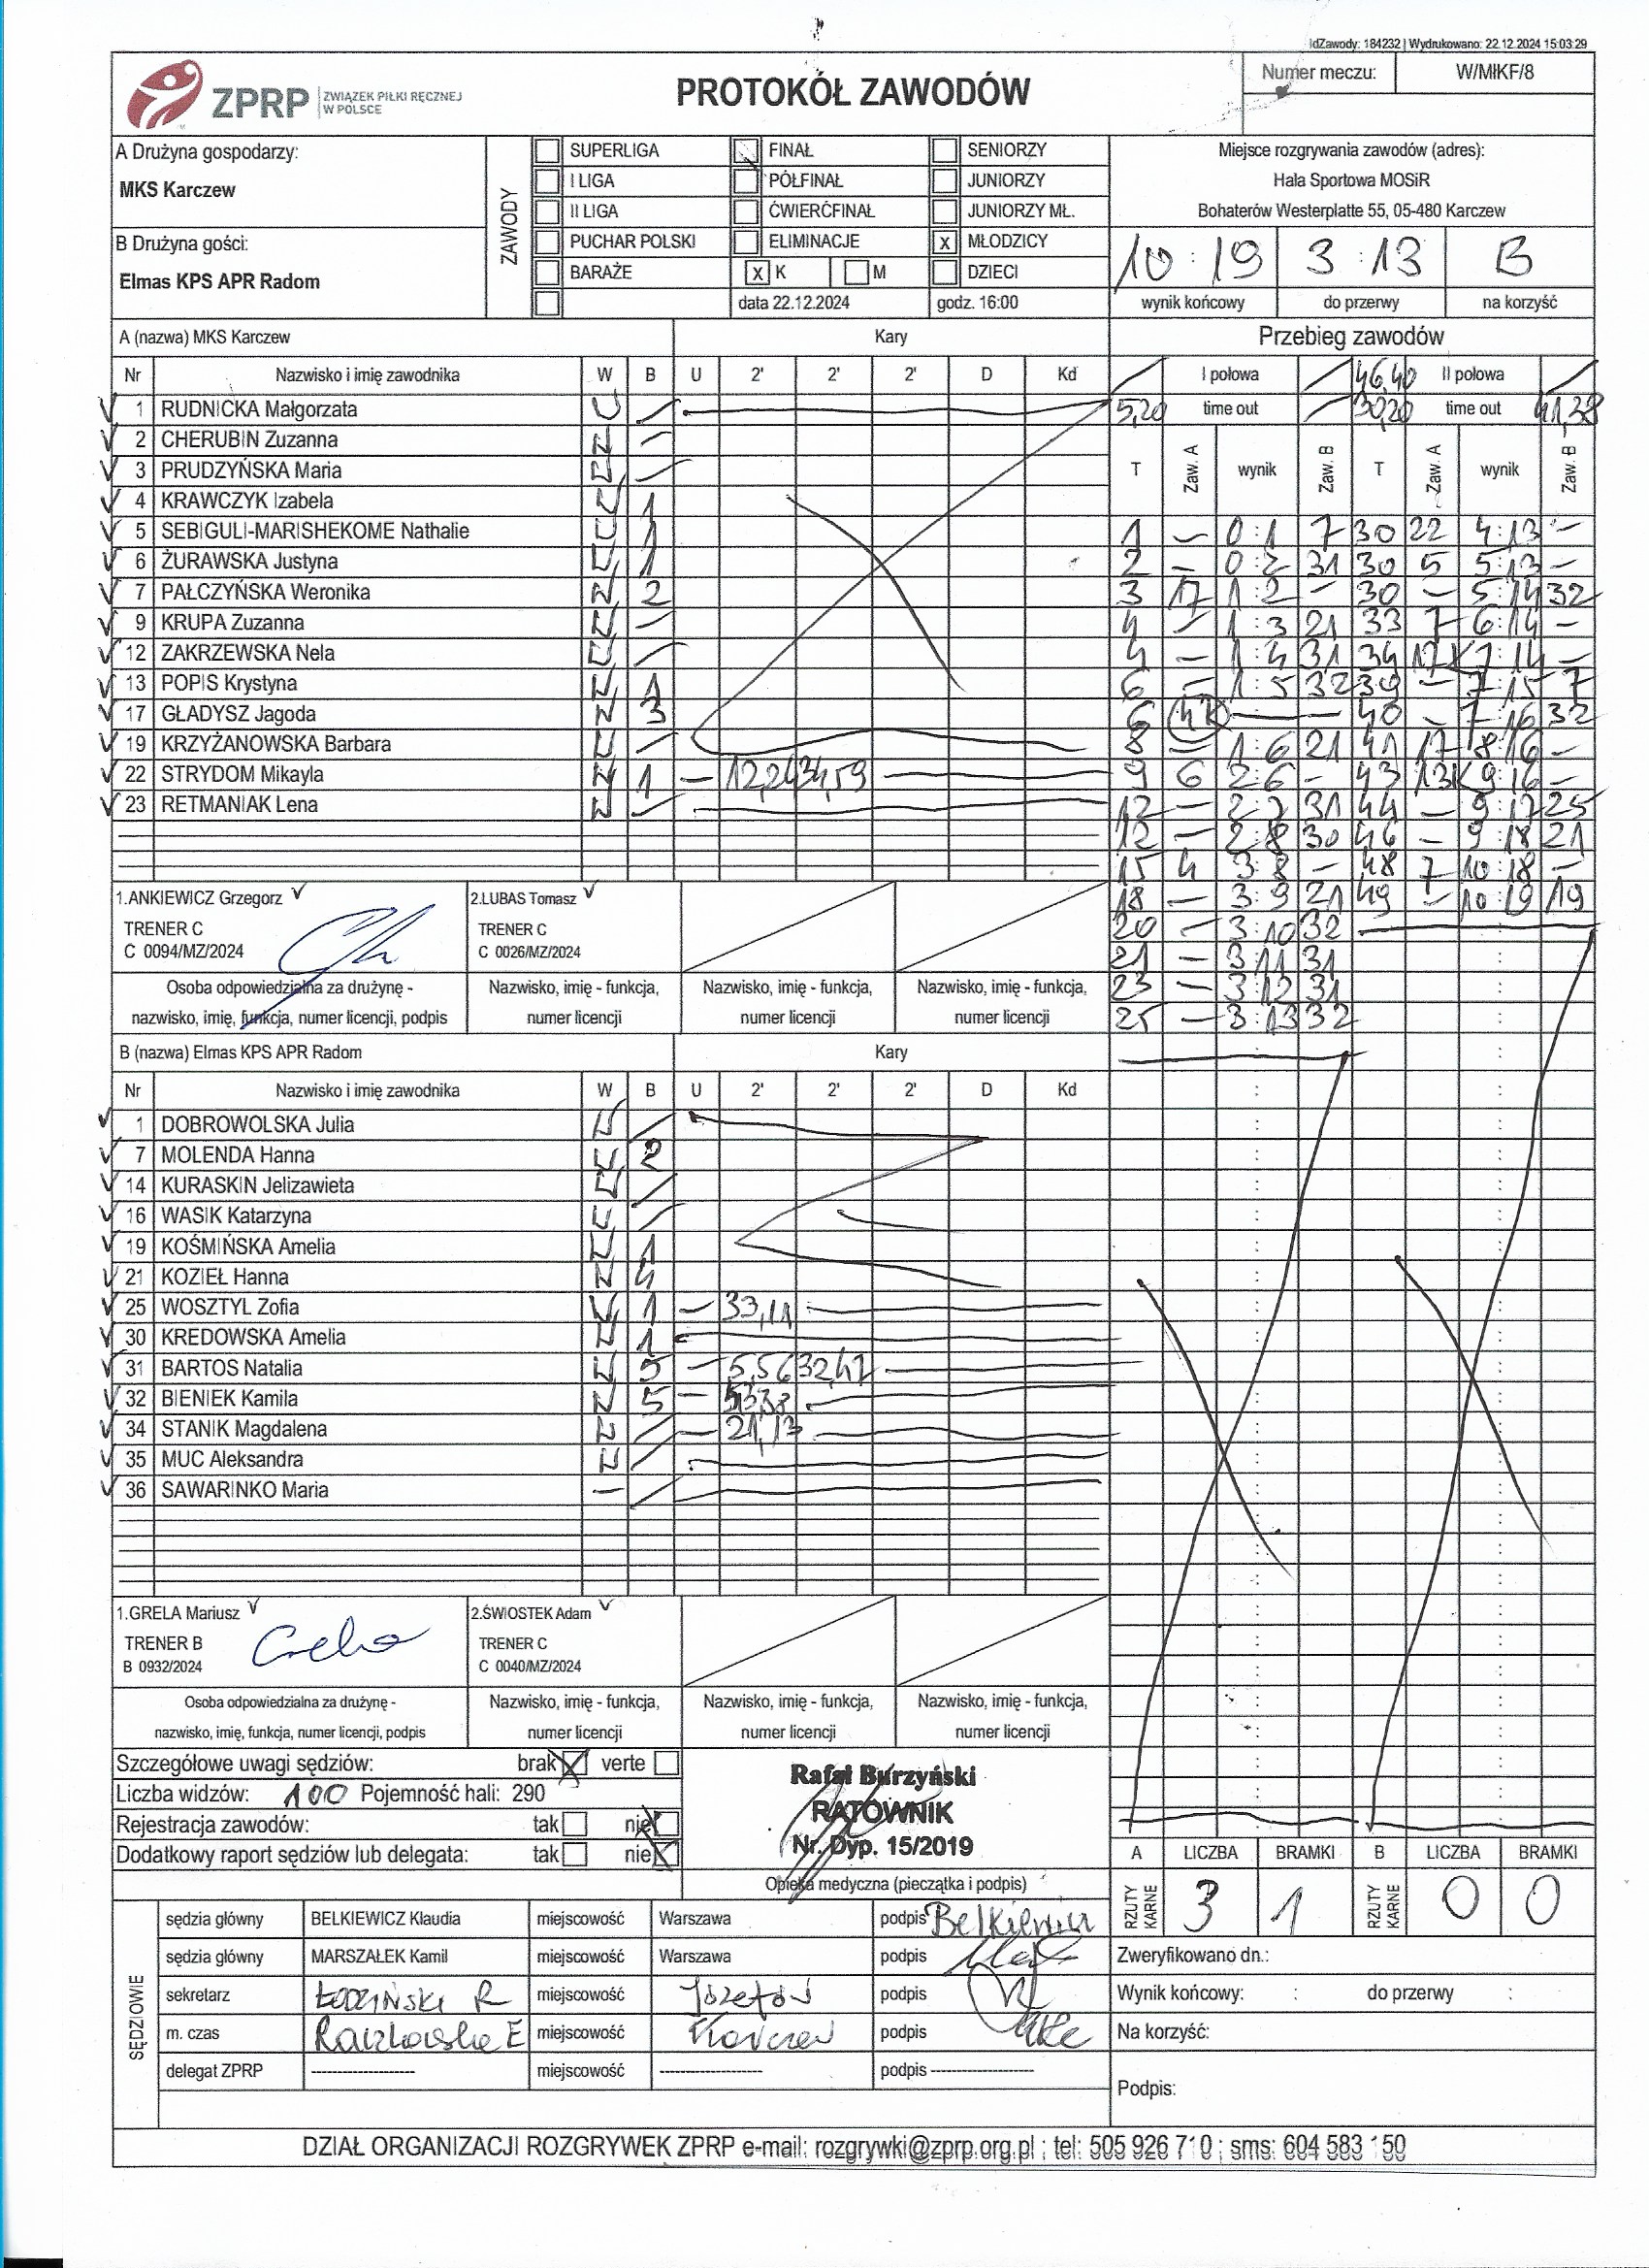 IdZawody: 184232 | Wydrukowano: 22.12.2024 15:03:29
ZPRP ZWIĄZEK PIŁKI RĘCZNEJ W POLSCE
PROTOKÓŁ ZAWODÓW
Numer meczu: W/MłKF/8
A Drużyna gospodarzy:
MKS Karczew
B Drużyna gości:
Elmas KPS APR Radom
ZAWODY
SUPERLIGA FINAŁ SENIORZY
I LIGA PÓŁFINAŁ JUNIORZY
II LIGA ĆWIERĆFINAŁ JUNIORZY MŁ.
PUCHAR POLSKI ELIMINACJE x MŁODZICY
BARAŻE x K M DZIECI
data 22.12.2024 godz. 16:00
Miejsce rozgrywania zawodów (adres):
Hala Sportowa MOSiR
Bohaterów Westerplatte 55, 05-480 Karczew
10 : 19 3 : 13 B
wynik końcowy do przerwy na korzyść
A (nazwa) MKS Karczew Kary
Nr Nazwisko i imię zawodnika W B U 2' 2' 2' D Kd
1 RUDNICKA Małgorzata
2 CHERUBIN Zuzanna
3 PRUDZYŃSKA Maria
4 KRAWCZYK Izabela 1
5 SEBIGULI-MARISHEKOME Nathalie 1
6 ŻURAWSKA Justyna 1
7 PAŁCZYŃSKA Weronika 2
9 KRUPA Zuzanna
12 ZAKRZEWSKA Nela
13 POPIS Krystyna 1
17 GŁADYSZ Jagoda 3
19 KRZYŻANOWSKA Barbara
22 STRYDOM Mikayla 1 — 12,24 34,59
23 RETMANIAK Lena
1.ANKIEWICZ Grzegorz 2.LUBAS Tomasz
TRENER C TRENER C
C 0094/MZ/2024 C 0026/MZ/2024
Osoba odpowiedzialna za drużynę - Nazwisko, imię - funkcja, Nazwisko, imię - funkcja, Nazwisko, imię - funkcja,
nazwisko, imię, funkcja, numer licencji, podpis numer licencji numer licencji numer licencji
B (nazwa) Elmas KPS APR Radom Kary
Nr Nazwisko i imię zawodnika W B U 2' 2' 2' D Kd
1 DOBROWOLSKA Julia
7 MOLENDA Hanna 2
14 KURASKIN Jelizawieta
16 WASIK Katarzyna
19 KOŚMIŃSKA Amelia 1
21 KOZIEŁ Hanna 4
25 WOSZTYL Zofia 1 — 33,11
30 KREDOWSKA Amelia 1
31 BARTOS Natalia 5 — 5,56 32,47
32 BIENIEK Kamila 5 —
34 STANIK Magdalena — 21,13
35 MUC Aleksandra
36 SAWARINKO Maria —
1.GRELA Mariusz 2.ŚWIOSTEK Adam
TRENER B TRENER C
B 0932/2024 C 0040/MZ/2024
Grela
Osoba odpowiedzialna za drużynę - Nazwisko, imię - funkcja, Nazwisko, imię - funkcja, Nazwisko, imię - funkcja,
nazwisko, imię, funkcja, numer licencji, podpis numer licencji numer licencji numer licencji
Przebieg zawodów
I połowa 46,40 II połowa
5,20 time out 30,20 time out 41,38
T Zaw. A wynik Zaw. B T Zaw. A wynik Zaw. B
1 — 0:1 7 30 22 4:13 —
2 — 0:2 31 30 5 5:13 —
3 17 1:2 — 30 — 5:14 32
4 — 1:3 21 33 7 6:14 —
4 — 1:4 31 34 17K 7:14 —
6 — 1:5 32 39 — 7:15 7
6 4K — 40 — 7:16 32
8 — 1:6 21 41 17 8:16 —
9 6 2:6 — 43 13K 9:16 —
12 — 2:7 31 44 — 9:17 25
12 — 2:8 30 46 — 9:18 21
15 4 3:8 — 48 7 10:18 —
18 — 3:9 21 49 — 10:19 19
20 — 3:10 32
21 — 3:11 31
23 — 3:12 31
25 — 3:13 32
Szczegółowe uwagi sędziów: brak verte
Liczba widzów: 100 Pojemność hali: 290
Rejestracja zawodów: tak nie
Dodatkowy raport sędziów lub delegata: tak nie
Rafał Burzyński
RATOWNIK
Nr. Dyp. 15/2019
Opieka medyczna (pieczątka i podpis)
A LICZBA BRAMKI B LICZBA BRAMKI
RZUTY KARNE 3 1 RZUTY KARNE 0 0
SĘDZIOWIE
sędzia główny BELKIEWICZ Klaudia miejscowość Warszawa podpis Belkiewicz
sędzia główny MARSZAŁEK Kamil miejscowość Warszawa podpis
sekretarz ŁODZIŃSKI R miejscowość Józefów podpis
m. czas Raczkowska E miejscowość Karczew podpis
delegat ZPRP -------------------- miejscowość -------------------- podpis --------------------
Zweryfikowano dn.:
Wynik końcowy: : do przerwy :
Na korzyść:
Podpis:
DZIAŁ ORGANIZACJI ROZGRYWEK ZPRP e-mail: rozgrywki@zprp.org.pl ; tel: 505 926 710 ; sms: 604 583 150